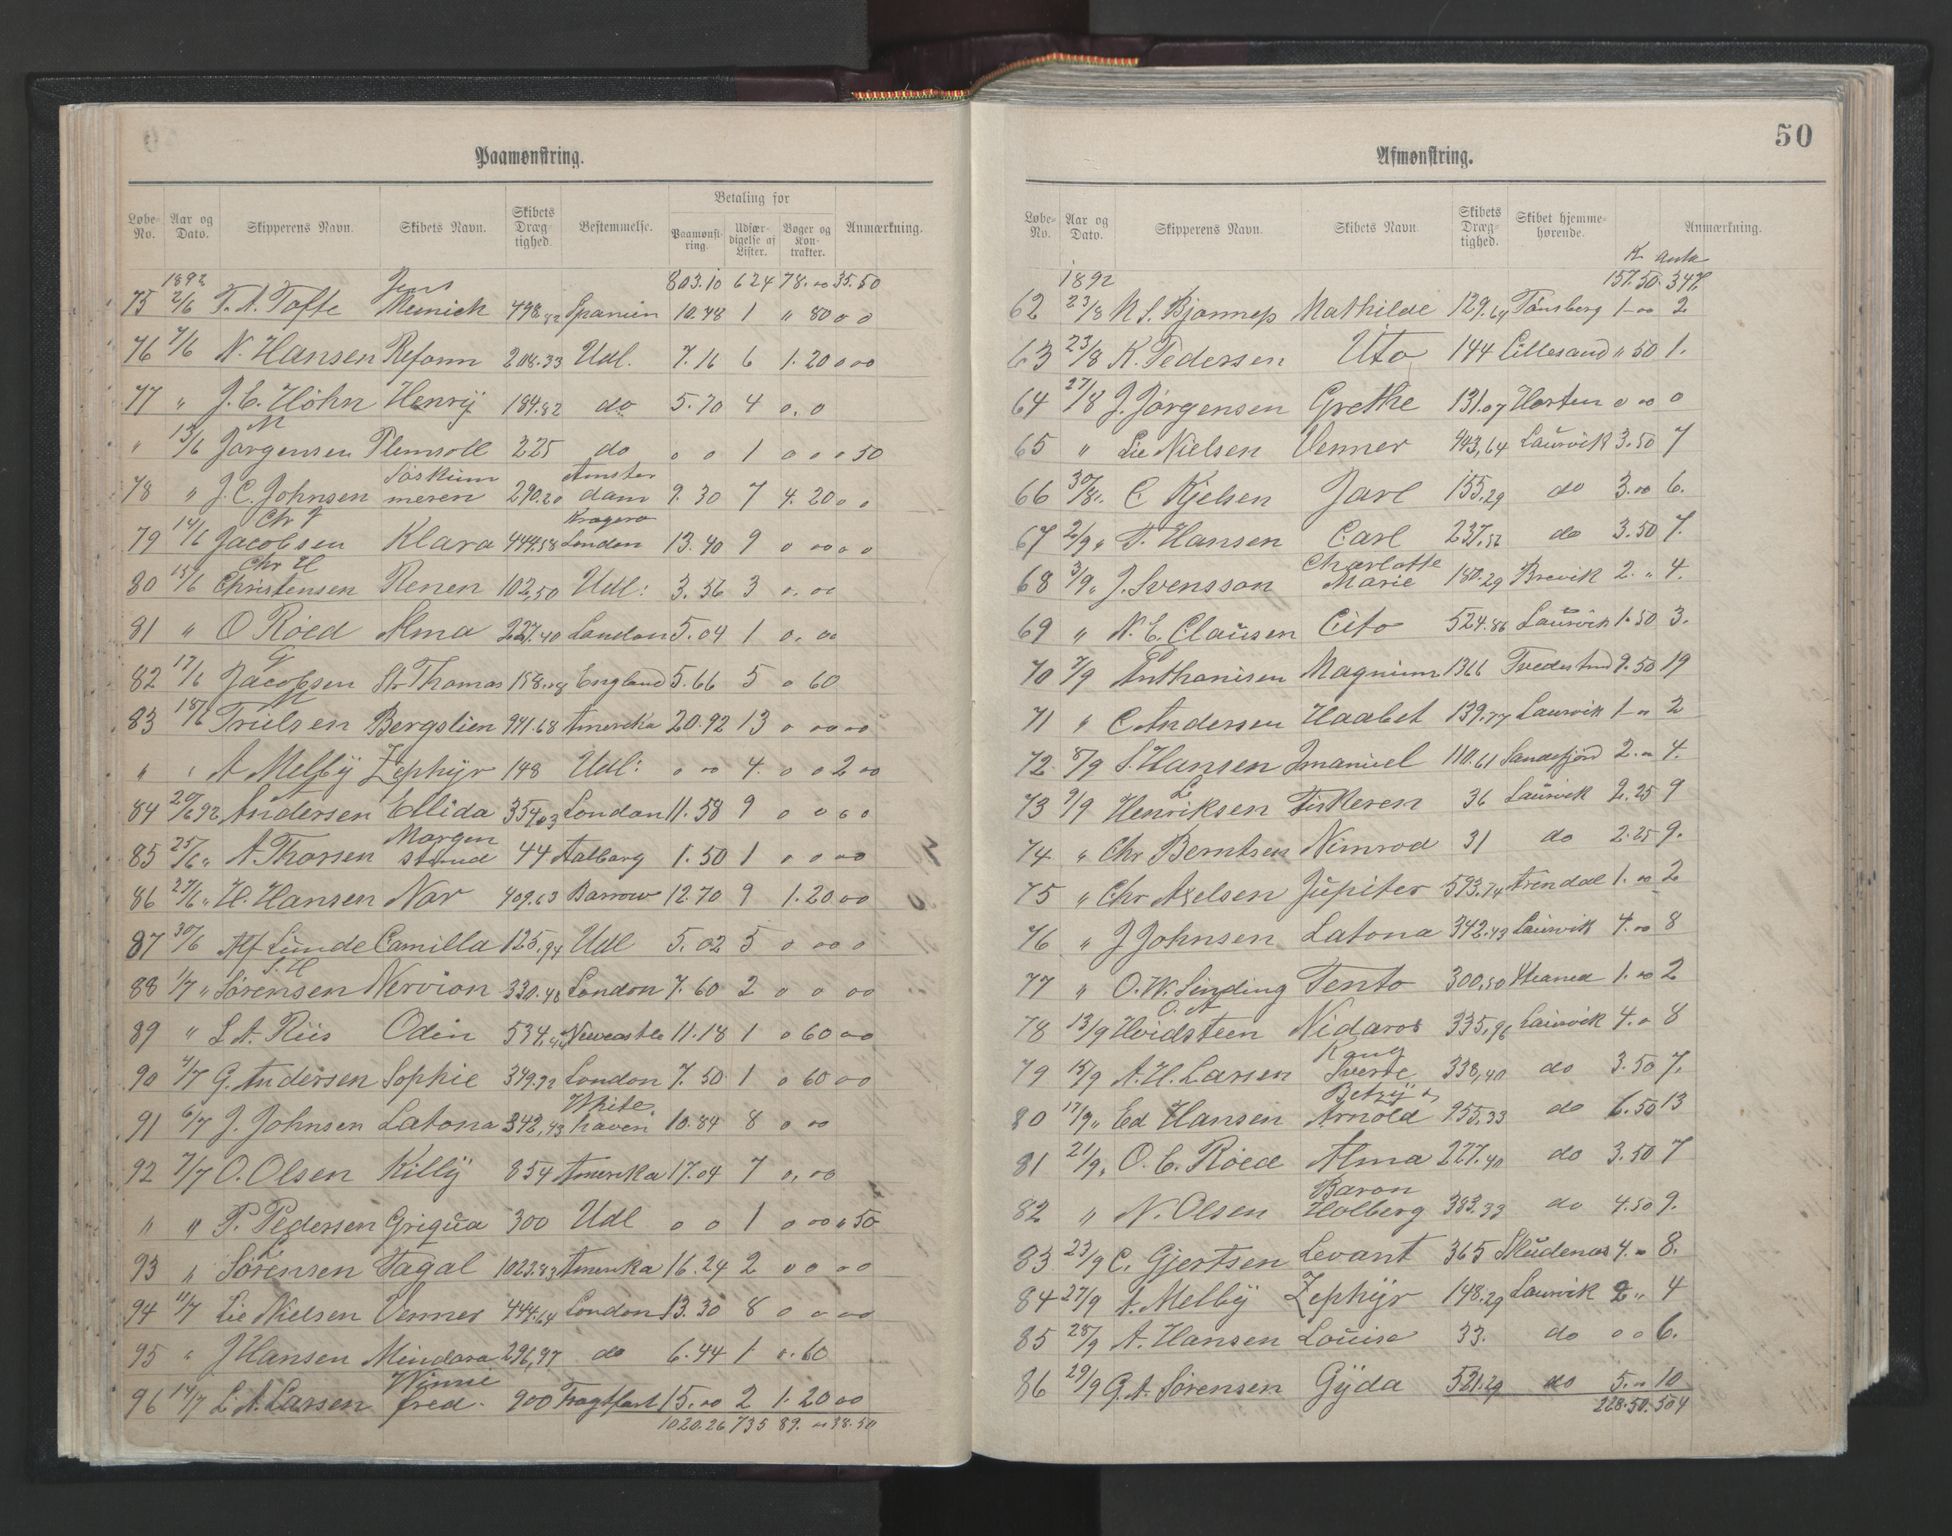 50
Paamønstring.
Løbe-No. Aar og Dato. Skipperens Navn. Skibets Navn. Skibets Dræg-tighed. Bestemmelse. Betaling for Paamønst-ring. Udfær-digelse af Lister. Bøger og Kon-trakter. Anmærkning.
1892 803.10 624 78.00 35.50
75 2/6 T. A. Tofte Jens Meinich 498.82 Spanien 10.48 1 " 80 0 0
76 7/6 N. Hansen Reform 208.33 Udl. 7.16 6 1.20 0 00
77 " J. C. Höhn Henrÿ 184.82 do 5.70 4 0.0
" 13/6 M Jörgensen Plimsoll 225 do 0 0 1 0 0 0 50
78 " J. C. Johnsen 290.20 Amsterdam 9.30 7 4.20 0 0
79 14/6 Chr J Jacobsen Klara 444.58 Kragerø London 13.40 9 0 00 0 0
80 15/6 Chr H Christensen Renen 102,50 Udl: 3.56 3 0.00
81 " O Röed Alma 227.40 London 5.04 1 0.00
82 17/6 G Jacobsen St. Thomas 158.18 England 5.66 5 0 60
83 18/6 M Trielsen Bergslien 941.68 Amerika 20.92 13 0 00 00
" " A Melbÿ Zephÿr 148 Udl: 0 00 4. 0 0 2 00
84 20/6 92 Andersen Ellida 354,03 London 11.58 9 0 0 0 0
85 25/6 " A Thorsen Morgenstund 44 Aalborg 1.50 1 0 0 00
86 27/6 " H. Hansen Nor 409.63 Barrow 12.70 9 1.20 00
87 30/6 Alf Lunde Camilla 125.94 Udl 5.02 5 0 00 0
88 1/7 " S. H Sörensen Nervion 330.48 London 7.60 2 0 0 00
89 " L. A. Riis Odin 534.44 Newcastle 11.18 1 0 60 00
90 4/7 G. Andersen Sophie 349.92 London 7.50 1 0 60 00
91 6/7 J. Johnsen Latona 342,43 Whitehaven 10.84 8 0 00
92 7/7 O. Olsen Killÿ 854 Amerika 17.04 7 0.00
" " P. Pedersen Griqua 300 Udl 0 0 1 0 00 " 50
93 " Sörensen Fagal 1023.83 Amerika 16.24 2 00 00
94 11/7 Lie Nielsen Venner 444.64 London 13.30 8 0 0 00
95 " J Hansen Mindora 296,97 do 6.44 1 0.60
96 14/7 L. A. Larsen Winnifred. 900 Fragtfart 15.00 2 1.20 00
1020.26 735 89.00 38.50
Afmønstring.
Løbe-No. Aar og Dato. Skipperens Navn. Skibets Navn. Skibets Dræg-tighed. Skibet hjemme-hørende. Anmærkning.
1892 K. Antal 157.50. 347
62 23/8 N S. Bjonnes Mathilde 129.64 Tönsberg 1-00 2
63 23/8 K. Pedersen Uto 144 Lillesand " 50 1.
64 27/8 J. Jörgensen Grethe 131.07 Horten 0 00 0
65 " Lie Nielsen Venner 443,64 Laurvik 3.50 7
66 30/8 " C Kjelsen Jarl 155.29 do 3.00 6.
67 2/9 " T. Hansen Carl 237.52 do 3.50 7.
68 3/9 " J. Svensson Charlotte Marie 180.29 Brevik 2. " 4.
69 " N. C. Clausen Cito 524.86 Laurvik 1.50 3.
70 7/9 Anthonisen Magnum 1366 Tvedestrand 9.50 19
71 " C. Andersen Haabet 139.77 Laurvik 1-" 2
72. 8/9 S. Hansen Imanuel 110.61 Sandefjord 2.00 4.
73 9/9 L. Henriksen Fiskeren 36 Laurvik 2.25 9
74 " Chr Berntsen Nimrod 31 do 2.25 9.
75 " Chr Axelsen Jupiter 593.74 Arendal 1.00 2
76 " J Johnsen Latona 342.43 Laurvik 4.00 8
77 " O. W. Linding Tento 300,50 1.00 2
78 13/9 O. A Hvidsteen Nidaros 335,96 Laurvik 4.0 8
79 15/9 A. H. Larsen Kong Sverre 338,40 do 3.50 7.
80 17/9 " Ed Hansen Betzÿ & Arnold 955.33 do 6.50 13
81 21/9 " O. C. Röed Alma 227.40 do 3.50 7
82 " N. Olsen Baron Holberg 383.33 do 4.50 9.
83 23/9 C. Gjertsen Levant 365 Skudenæs 4.00 8.
84 27/9 A. Melbÿ Zephÿr 148.29 Laurvik 2 " 4
85 28/9 A. Hansen Louise 33. do 0 0 6.
86 29/9 G. A. Sörensen Gÿda 521.29 do 5." 10
228.50. 504